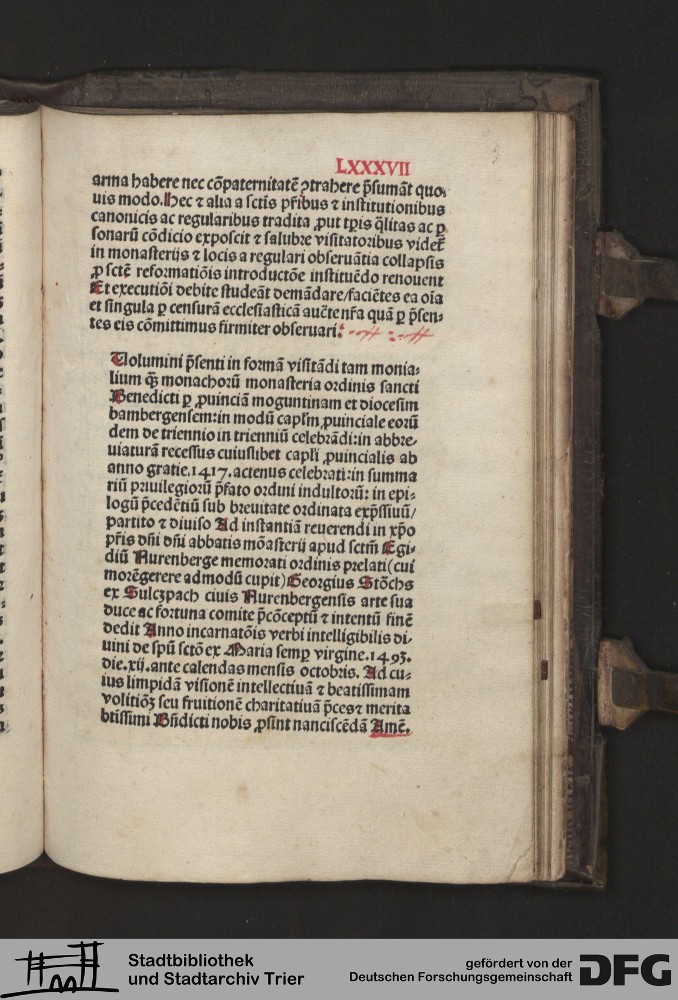 LXXXVII
arma habere nec cōpaternitatē ꝯtrahere p̄sumāt quo-
uis modo. Hec ⁊ alia a sctīs pr̄ibus ⁊ institutionibus
canonicis ac regularibus tradita ꝓut tp̄is q̄litas ac ꝑ
sonarū cōdicio exposcit ⁊ salubre visitatoribus videt̄
in monasterijs ⁊ locis a regulari obseruātia collapsis
ꝓ sctē reformatiōis introductōe instituēdo renouent
Et executiōi debite studeāt demādare/faciētes ea oīa
et singula ꝑ censurā ecclesiasticā auc̄te nr̄a quā ꝑ p̄sen-
tes eis cōmittimus firmiter obseruari:
Uolumini p̄senti in formā visitādi tam monia-
lium qꝫ monachorū monasteria ordinis sancti
Benedicti ꝑ ꝓuinciā moguntinam et diocesim
bambergensem: in modū capl̄m ꝓuinciale eorū
dem de triennio in trienniū celebrādi: in abbre-
uiaturā recessus cuiuslibet capl̄i ꝓuincialis ab
anno gratie. 1417. actenus celebrati: in summa
riū priuilegiorū p̄fato ordini indultorū: in epi-
logū p̄cedētiū sub breuitate ordinata exp̄ssiuū/
partito ⁊ diuiso Ad instantiā reuerendi in xp̄o
pr̄is dn̄i dn̄i abbatis mōasterij apud sctm̄ Egi-
diū Nurenberge memorati ordinis prelati (cui
morē gerere admodū cupit) Georgius Stōchs
ex Sulczpach ciuis Nurenbergensis arte sua
duce ac fortuna comite p̄cōceptū ⁊ intentū finē
dedit Anno incarnatōis verbi intelligibilis di-
uini de spū sctō ex Maria semꝑ virgine. 1493.
die. xij. ante calendas mensis octobris. Ad cu-
ius limpidā visionē intellectiuā ⁊ beatissimam
volitiōꝫ seu fruitionē charitatiuā p̄ces ⁊ merita
btīssimi Bn̄dicti nobis ꝓsint nanciscēdā Amē.
Stadtbibliothek
und Stadtarchiv Trier
gefördert von der
Deutschen Forschungsgemeinschaft
DFG